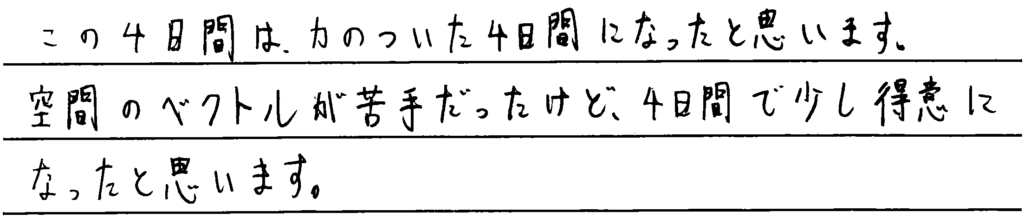 この4日間は、力のついた4日間になったと思います。
空間のベクトルが苦手だったけど、4日間で少し得意に
なったと思います。